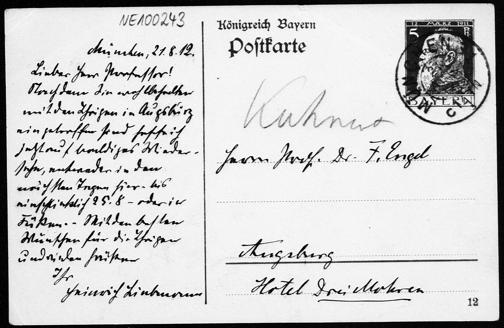 NE100243
Königreich Bayern
Postkarte
5 Pf
BAYERN
MÜNCHEN
München, 21.8.12.
Lieber Herr Professor!
Nachdem Sie wohlbehalten
mit den Ihrigen in Augsburg
eingetroffen sind hoffe ich
jetzt auf baldiges Wieder-
sehen, entweder in den
nächsten Tagen hier - bis
einschließlich 25.8 - oder in
Füßen. - Mit den besten
Wünschen für die Ihrigen
und vielen Grüßen
Ihr
Heinrich Liebmann
Herrn Prof. Dr. F. Engel
Augsburg
Hotel Drei Mohren
12